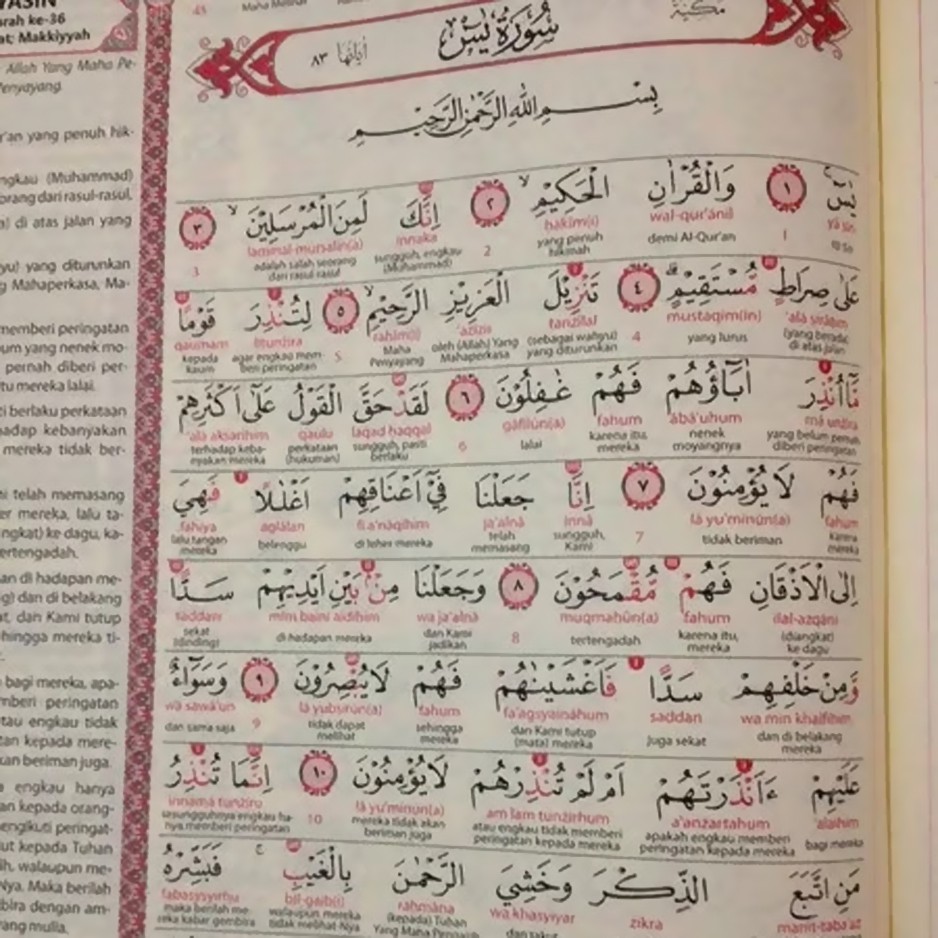 YASIN
Surah ke-36
Makkiyyah
Allah Yang Maha Pe-
Penyayang.
yang penuh hik-
engkau (Muhammad)
dari rasul-rasul,
di atas jalan yang
yang diturunkan
Mahaperkasa, Ma-
memberi peringatan
yang nenek mo-
pernah diberi per-
mereka lalai.
berlaku perkataan
kebanyakan
mereka tidak ber-
telah memasang
mereka, lalu ta-
ke dagu, ka-
tertengadah.
di hadapan me-
dan di belakang
dan Kami tutup
sehingga mereka ti-
bagi mereka, apa-
memberi peringatan
atau engkau tidak
kepada mere-
beriman juga.
engkau hanya
kepada orang-
mengikuti peringat-
kepada Tuhan
walaupun me-
Nya. Maka berilah
dengan am-
yang mulia.
مكية
سُوْرَةُ يٰسۤ
اٰيَاتُهَا ٨٣
بِسْمِ اللّٰهِ الرَّحْمٰنِ الرَّحِيْمِ
يٰسۤ ١ وَالْقُرْاٰنِ الْحَكِيْمِۙ ٢ اِنَّكَ لَمِنَ الْمُرْسَلِيْنَۙ ٣
yā sīn wal-qur'ānil ḥakīm(i) innaka laminal-mursalīn(a)
1 demi Al-Qur'an yang penuh hikmah 2 sungguh, engkau (Muhammad) adalah salah seorang dari rasul-rasul 3
عَلٰى صِرَاطٍ مُّسْتَقِيْمٍۗ ٤ تَنْزِيْلَ الْعَزِيْزِ الرَّحِيْمِۙ ٥ لِتُنْذِرَ قَوْمًا
'alā ṣirāṭim mustaqīm(in) tanzīlal 'azīzir raḥīm(i) litunżira qaumam
(yang berada) di atas jalan yang lurus 4 (sebagai wahyu) yang diturunkan oleh (Allah) Yang Mahaperkasa Maha Penyayang 5 agar engkau memberi peringatan kepada kaum
مَّآ اُنْذِرَ اٰبَاۤؤُهُمْ فَهُمْ غٰفِلُوْنَ ٦ لَقَدْ حَقَّ الْقَوْلُ عَلٰٓى اَكْثَرِهِمْ
mā unżira ābā'uhum fahum gāfilūn(a) laqad ḥaqqal qaulu 'alā akṡarihim
yang belum pernah diberi peringatan nenek moyangnya karena itu, mereka lalai 6 sungguh, pasti berlaku perkataan (hukuman) terhadap kebanyakan mereka
فَهُمْ لَا يُؤْمِنُوْنَ ٧ اِنَّا جَعَلْنَا فِيْٓ اَعْنَاقِهِمْ اَغْلٰلًا فَهِيَ
fahum lā yu'minūn(a) innā ja'alnā fī a'nāqihim aglālan fahiya
karena mereka tidak beriman 7 sungguh, Kami telah memasang di leher mereka belenggu lalu tangan mereka
اِلَى الْاَذْقَانِ فَهُمْ مُّقْمَحُوْنَ ٨ وَجَعَلْنَا مِنْۢ بَيْنِ اَيْدِيْهِمْ سَدًّا
ilal-ażqāni fahum muqmaḥūn(a) wa ja'alnā mim baini aidīhim saddaw
(diangkat) ke dagu karena itu, mereka tertengadah 8 dan Kami jadikan di hadapan mereka sekat (dinding)
وَّمِنْ خَلْفِهِمْ سَدًّا فَاَغْشَيْنٰهُمْ فَهُمْ لَا يُبْصِرُوْنَ ٩ وَسَوَاۤءٌ
wa min khalfihim saddan fa'agsyaināhum fahum lā yubṣirūn(a) wa sawā'un
dan di belakang mereka juga sekat dan Kami tutup (mata) mereka sehingga mereka tidak dapat melihat 9 dan sama saja
عَلَيْهِمْ ءَاَنْذَرْتَهُمْ اَمْ لَمْ تُنْذِرْهُمْ لَا يُؤْمِنُوْنَ ١٠ اِنَّمَا تُنْذِرُ
'alaihim a'anżartahum am lam tunżirhum lā yu'minūn(a) innamā tunżiru
bagi mereka apakah engkau memberi peringatan kepada mereka atau engkau tidak memberi peringatan kepada mereka mereka tidak akan beriman juga 10 sesungguhnya engkau hanya memberi peringatan
مَنِ اتَّبَعَ الذِّكْرَ وَخَشِيَ الرَّحْمٰنَ بِالْغَيْبِۚ فَبَشِّرْهُ
manit-taba'aż żikra wa khasyiyar raḥmāna bil-gaib(i) fabasysyirhu
(kepada) Tuhan Yang Maha Pengasih walaupun mereka tidak melihat-Nya maka berilah mereka kabar gembira